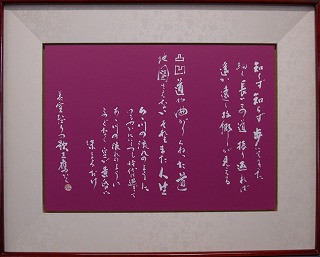 知らず知らず歩いてきた
細く長いこの道振り返れば
遥か遠く故郷が見える
凸凹道や曲がりくねった道
地図さえないそれもまた人生
ああ川の流れのように
ゆるやかにいくつも時代は過ぎて
ああ川の流れのように
とめどなく空が黄昏に
染まるだけ
美空ひばりの歌